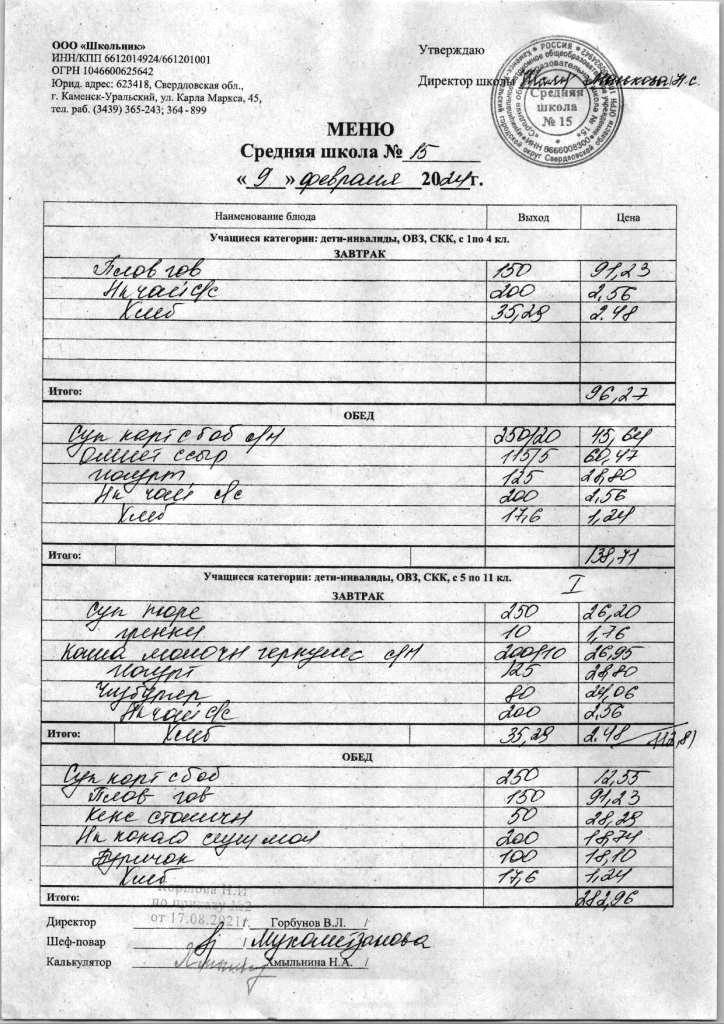 ООО «Школьник»
ИНН/КПП 6612014924/661201001
ОГРН 1046600625642
Юрид. адрес: 623418, Свердловская обл.,
г. Каменск-Уральский, ул. Карла Маркса, 45,
тел. раб. (3439) 365-243; 364 - 899
Утверждаю
Директор школы
РОССИЯ
Средняя
школа
№ 15
МЕНЮ
Средняя школа № 15
« 9 » февраля 2024г.
Наименование блюда Выход Цена
Учащиеся категории: дети-инвалиды, ОВЗ, СКК, с 1по 4 кл.
ЗАВТРАК
Плов гов 150 91,23
Нп чай с/с 200 2,56
Хлеб 35,29 2.48
Итого: 96,27
ОБЕД
Суп карт с боб с/м 250/20 45,64
Омлет с сыр 115/5 60,47
Йогурт 125 28,80
Нп чай с/с 200 2,56
Хлеб 17,6 1,24
Итого: 138,71
Учащиеся категории: дети-инвалиды, ОВЗ, СКК, с 5 по 11 кл. I
ЗАВТРАК
Суп пюре 250 26,20
гренки 10 1,76
Каша молочн геркулес с/м 200/10 26,95
Йогурт 125 28,80
Чизбургер 80 24,06
Нп чай с/с 200 2,56
Итого: Хлеб 35,29 2.48 112,81
ОБЕД
Суп карт с боб 250 12,55
Плов гов 150 91,23
Кекс столичн 50 28,29
Нп какао сгущ мол 200 18,74
100 18,10
Хлеб 17,6 1,24
Итого: 282,96
по приказу №2
от 17.08.2021г.
Директор / Горбунов В.Л. /
Шеф-повар / Мухаметзанова
Калькулятор / Хмыльнина Н.А. /